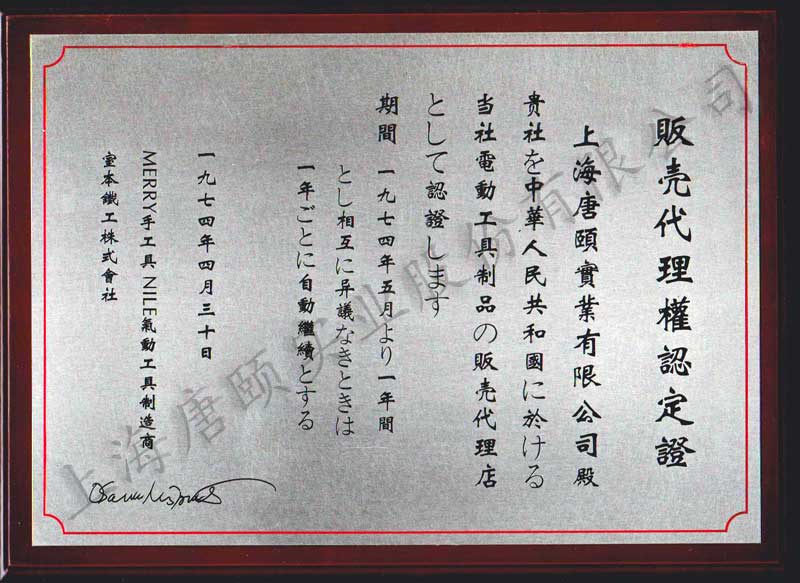 販売代理權認定證
上海唐頤實業有限公司殿
貴社を中華人民共和國に於ける
当社電動工具制品の販売代理店
として認證します
期間 一九七四年五月より一年間
とし相互に异議なきときは
一年ごとに自動繼續とする
一九七四年四月三十日
MERRY手工具 NILE氣動工具制造商
室本鐵工株式會社
上海唐颐实业股份有限公司